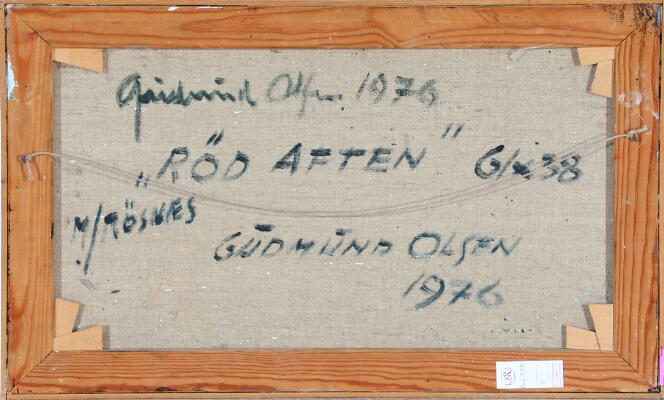 Gudmund Olsen 1976
„RÖD AFTEN"
M/RÖSNES
GŪDMŪND OLSEN
1976